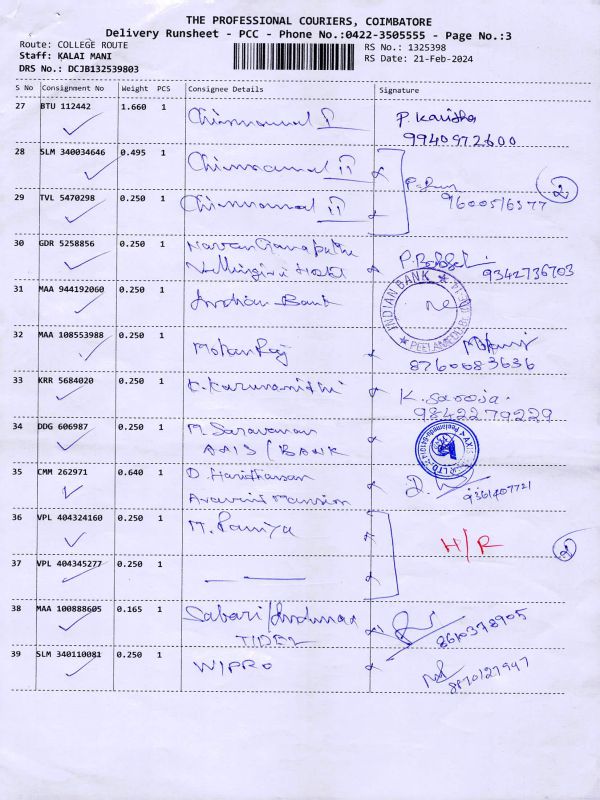 THE PROFESSIONAL COURIERS, COIMBATORE
Delivery Runsheet - PCC - Phone No.:0422-3505555 - Page No.:3
Route: COLLEGE ROUTE RS No.: 1325398
Staff: KALAI MANI RS Date: 21-Feb-2024
DRS No.: DCJB132539803
S No Consignment No Weight PCS Consignee Details Signature
27 BTU 112442 1.660 1 Chinnammal I
9940972600
28 SLM 340034646 0.495 1 Chinnammal II
29 TVL 5470298 0.250 1 Chinnammal II 9600516377 2
30 GDR 5258856 0.250 1
9342736703
31 MAA 944192060 0.250 1 Indian Bank
INDIAN BANK
32 MAA 108553988 0.250 1 Mohan Raj
8760083636
33 KRR 5684020 0.250 1 K. Karunanithi K. Saroja
9842279229
34 DDG 606987 1 0.250 1 M. Saravanan
AXIS BANK
35 CMM 262971 0.640 1 D. Hariharan 9361407721
Mansion
36 VPL 404324160 0.250 1 M. Ramya H/R 2
37 VPL 404345277 0.250 1
38 MAA 100888605 0.165 1 Sabari 8610378905
TIDEL
39 SLM 340110081 0.250 1 WIPRO
8870127947